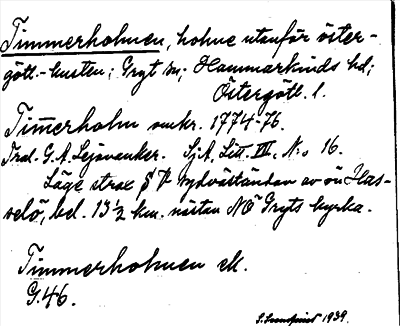 Timmerholmen, holme utanför öster-
gött.-kusten; Gryt sn; Hammarkinds hd;
Östergötl. l.
Tim̅erholm omkr. 1774-76.
Trol. G. A. Lejonanker. SjA, Litt. III, N:o 16.
Läge strax S V sydväständan av ön Has-
selö, bel. 13 1/2 km. nästan NÖ Gryts kyrka.
Timmerholmen ek.
G. 46.
S. Sundqvist 1939.